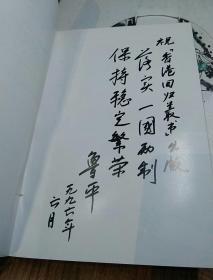 祝《香港回归丛书》出版
落实一國两制
保持稳定繁荣
鲁平
一九九六年
六月